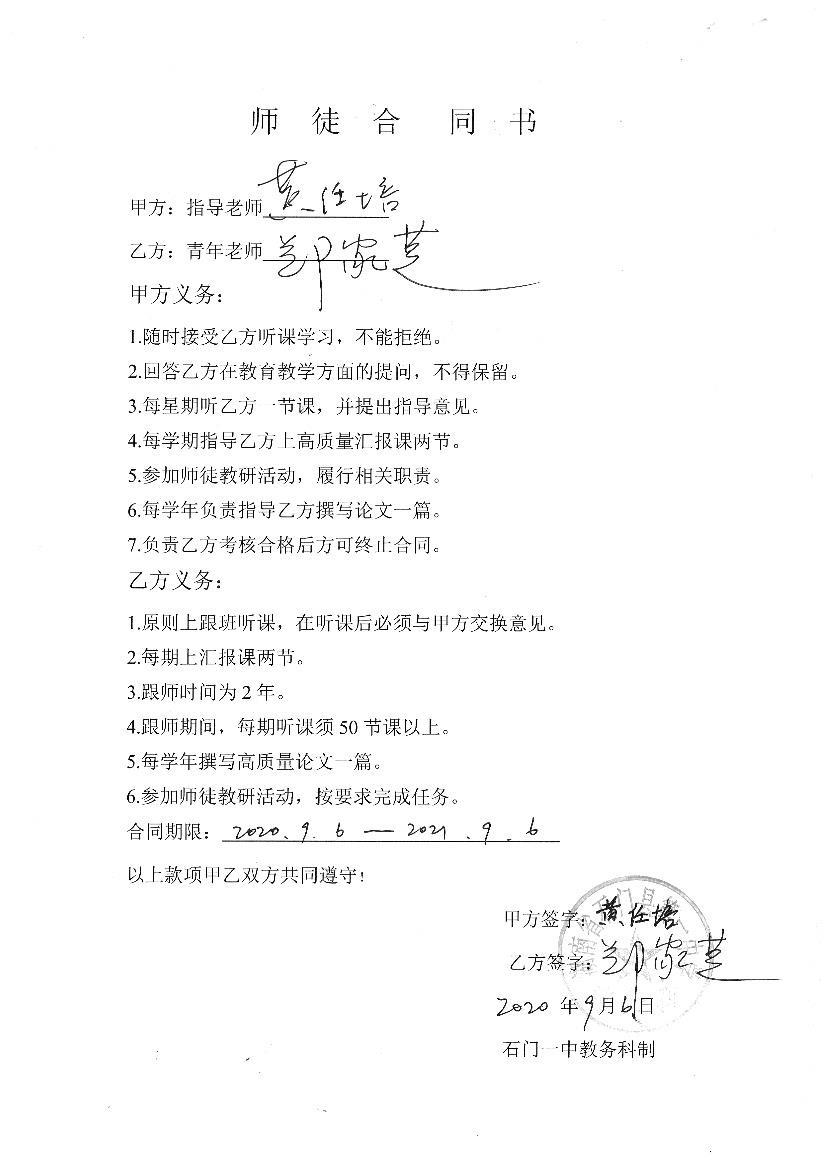 师徒合同书
甲方：指导老师黄任培
乙方：青年老师郑家芝
甲方义务：
1.随时接受乙方听课学习，不能拒绝。
2.回答乙方在教育教学方面的提问，不得保留。
3.每星期听乙方一节课，并提出指导意见。
4.每学期指导乙方上高质量汇报课两节。
5.参加师徒教研活动，履行相关职责。
6.每学年负责指导乙方撰写论文一篇。
7.负责乙方考核合格后方可终止合同。
乙方义务：
1.原则上跟班听课，在听课后必须与甲方交换意见。
2.每期上汇报课两节。
3.跟师时间为2年。
4.跟师期间，每期听课须50节课以上。
5.每学年撰写高质量论文一篇。
6.参加师徒教研活动，按要求完成任务。
合同期限：2020.9.6—2021.9.6
以上款项甲乙双方共同遵守！
甲方签字：黄任培
乙方签字：郑家芝
2020年9月6日
石门一中教务科制